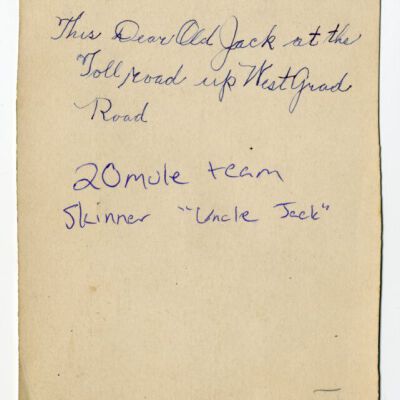 This Dear Old Jack at the
Toll road up West Grad
Road
20 mule team
Skinner "Uncle Jack"